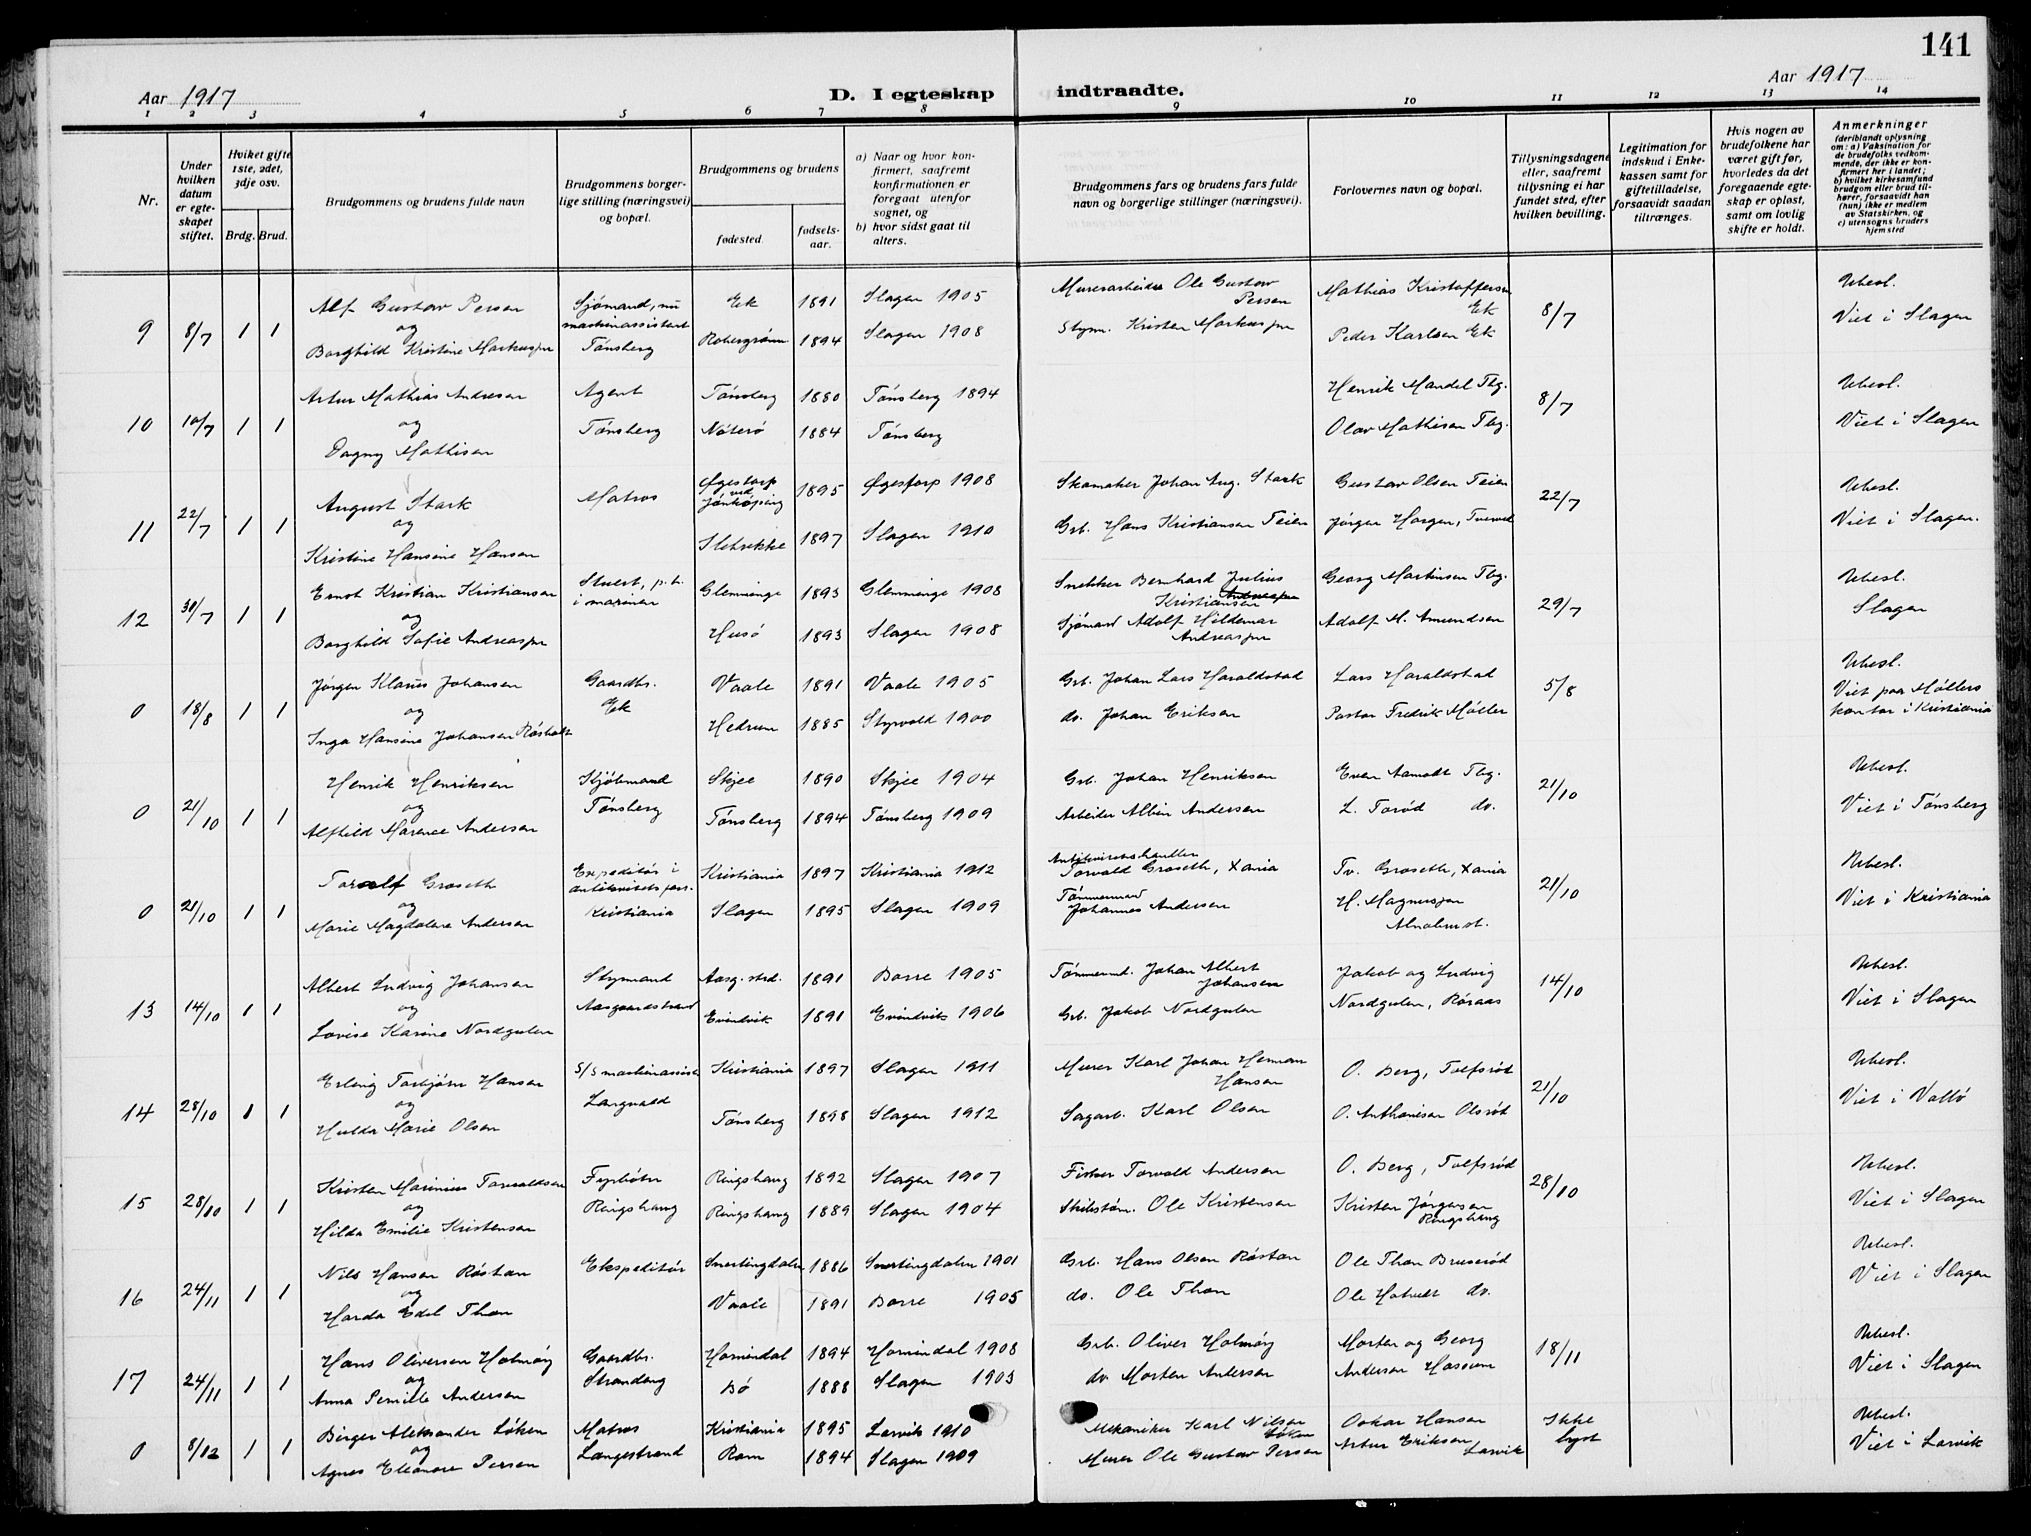 141
Aar 1917 D. I egteskap indtraadte. Aar 1917
1 2 3 4 5 6 7 8 9 10 11 12 13 14
Nr.
Under hvilken datum er egteskapet stiftet.
Hvilket gifte 1ste, 2det, 3dje osv.
Brdg. Brud.
Brudgommens og brudens fulde navn
Brudgommens borgerlige stilling (næringsvei) og bopæl.
Brudgommens og brudens
fødested. fødselsaar.
a) Naar og hvor konfirmert, saafremt konfirmationen er foregaat utenfor sognet, og
b) hvor sidst gaat til alters.
Brudgommens fars og brudens fars fulde navn og borgerlige stillinger (næringsvei).
Forlovernes navn og bopæl.
Tillysningsdagene eller, saafremt tillysning ei har fundet sted, efter hvilken bevilling.
Legitimation for indskud i Enkekassen samt for giftetilladelse, forsaavidt saadan tiltrænges.
Hvis nogen av brudefolkene har været gift før, hvorledes da det foregaaende egteskap er opløst, samt om lovlig skifte er holdt.
Anmerkninger
(deriblandt oplysning om: a) Vaksination for de brudefolks vedkommende, der ikke er konfirmert her i landet; b) hvilket kirkesamfund brudgom eller brud tilhører, forsaavidt han (hun) ikke er medlem av Statskirken, og c) utensogns bruders hjemsted
9 8/7 1 1 Alf Gustav Persen Sjømand, nu maskinassistent Ek 1891 Slagen 1905 Murerarbeider Ole Gustav Persen Mathias Kristoffersen Ek 8/7 Ubesl.
og
Borghild Kristine Markussen Tønsberg 1894 Slagen 1908 Styrm. Kristen Markussen Peder Karlsen Ek Viet i Slagen
10 10/7 1 1 Artur Mathias Andresen Agent Tønsberg 1880 Tønsberg 1894 Henrik Mandel Tbg. 8/7 Ubesl.
og
Dagny Mathisen Tønsberg Nøterø 1884 Tønsberg Olav Mathisen Tbg. Viet i Slagen
11 22/7 1 1 August Stark Matros Øgestorp ved Jönköping 1895 Øgestorp 1908 Skomaker Johan Aug. Stark Gustav Olsen Teien 22/7 Ubesl.
og
Kristine Hansine Hansen Sletrekke 1897 Slagen 1910 Grb. Hans Kristiansen Teien Jørgen Horgen, Viet i Slagen.
12 30/7 1 1 Ernst Kristian Kristiansen Stuert, p.t. i marinen Glemminge 1893 Glemminge 1908 Snekker Bernhard Julius Kristiansen Georg Martinsen Tbg. 29/7 Ubesl.
og
Borghild Sofie Andreassen Husø 1893 Slagen 1908 Sjømand Adolf Hildemar Andreassen Adolf M. Amundsen Slagen
0 18/8 1 1 Jørgen Klaus Johansen Gaardbr. Vaale 1891 Vaale 1905 Grb. Johan Lars Haraldstad Lars Haraldstad 5/8 Ubesl.
og Ek
Inga Hansine Johansen Røsholt Hedrum 1885 Styrvold 1900 do. Johan Eriksen Pastor Fredrik Møller Viet paa Møllers kontor i Kristiania
0 21/10 1 1 Henrik Henriksen Kjøbmand Skjee 1890 Skjee 1904 Grb. Johan Henriksen Even Aamodt Tbg. 21/10 Ubesl.
og
Alfhild Marence Andersen Tønsberg Tønsberg 1894 Tønsberg 1909 Arbeider Albin Andersen L. Torød do. Viet i Tønsberg
0 21/10 1 1 Torolf Groseth Expeditør i antikvitetsforr. Kristiania 1897 Kristiania 1912 Antikvitetshandler Torvald Groseth, Xania Tv. Groseth, Xania 21/10 Ubesl.
og
Marie Magdalene Andersen Kristiania Slagen 1895 Slagen 1909 Tømmermand Johannes Andersen H. Magnussen Alnabru st. Viet i Kristiania
13 14/10 1 1 Albert Ludvig Johansen Styrmand Aasg. strd. 1891 Borre 1905 Tømmermd. Johan Albert Johansen Jakob og Ludvig 14/10 Ubesl.
og
Lovise Karine Nordgulen Aasgaardstrand Evindvik 1891 Evindvik 1906 Grb. Jakob Nordgulen Nordgulen, Røraas Viet i Slagen
14 28/10 1 1 Erling Torbjørn Hansen S/S maskinassist. Kristiania 1897 Slagen 1911 Murer Karl Johan Herman Hansen O. Berg, Tolfsrød 21/10 Ubesl.
og
Hulda Marie Olsen Langvald Tønsberg 1898 Slagen 1912 Sagarb. Karl Olsen O. Anthonisen Olsrød Viet i Vallø
15 28/10 1 1 Kristen Marinius Torvaldsen Fyrbøter Ringshaug 1892 Slagen 1907 Fisker Torvald Andersen O. Berg, Tolfsrød 28/10 Ubesl.
og
Hilda Emilie Kristensen Ringshaug Ringshaug 1889 Slagen 1904 Skibstøm. Ole Kristensen Kristen Jørgensen Ringshaug Viet i Slagen
16 24/11 1 1 Nils Hansen Røstan Ekspeditør Snertingdalen 1886 Snertingdalen 1901 Grb. Hans Olsen Røstan Ole Thon Bruserød Ubesl.
og
Harda Edel Thon Vaale 1891 Borre 1905 do. Ole Thon Ole Hotvedt do. Viet i Slagen
17 24/11 1 1 Hans Oliversen Holmøy Gaardbr. Hornindal 1894 Hornindal 1908 Grb. Oliver Holmøy Morten og Georg 18/11 Ubesl.
og
Anna Pernille Andersen Strandeng Bø 1888 Slagen 1903 do Morten Andersen Andersen Hasum Viet i Slagen
0 8/12 1 1 Birger Aleksander Løken Matros Kristiania 1895 Larvik 1910 Mekaniker Karl Nilsen Løken Oskar Hansen Ikke lyst Ubesl.
og
Agnes Eleonore Persen Langestrand Rom 1894 Slagen 1909 Murer Ole Gustav Persen Artur Eriksen Larvik Viet i Larvik